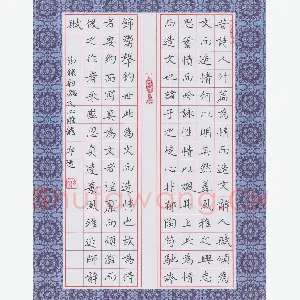 昔詩人什篇為情而造文辭人賦頌為
文而造情何以明其然蓋風雅之興志
思蓄憤而吟詠情性以諷其上此為情
而造文也諸子之徒心非鬱陶苟馳夸
飾鬻聲釣世此為文而造情也故為情
者要約而寫真為文者淫麗而煩濫而
後之作者采濫忽真遠棄風雅近師辭
賦
節錄劉勰文心雕龍